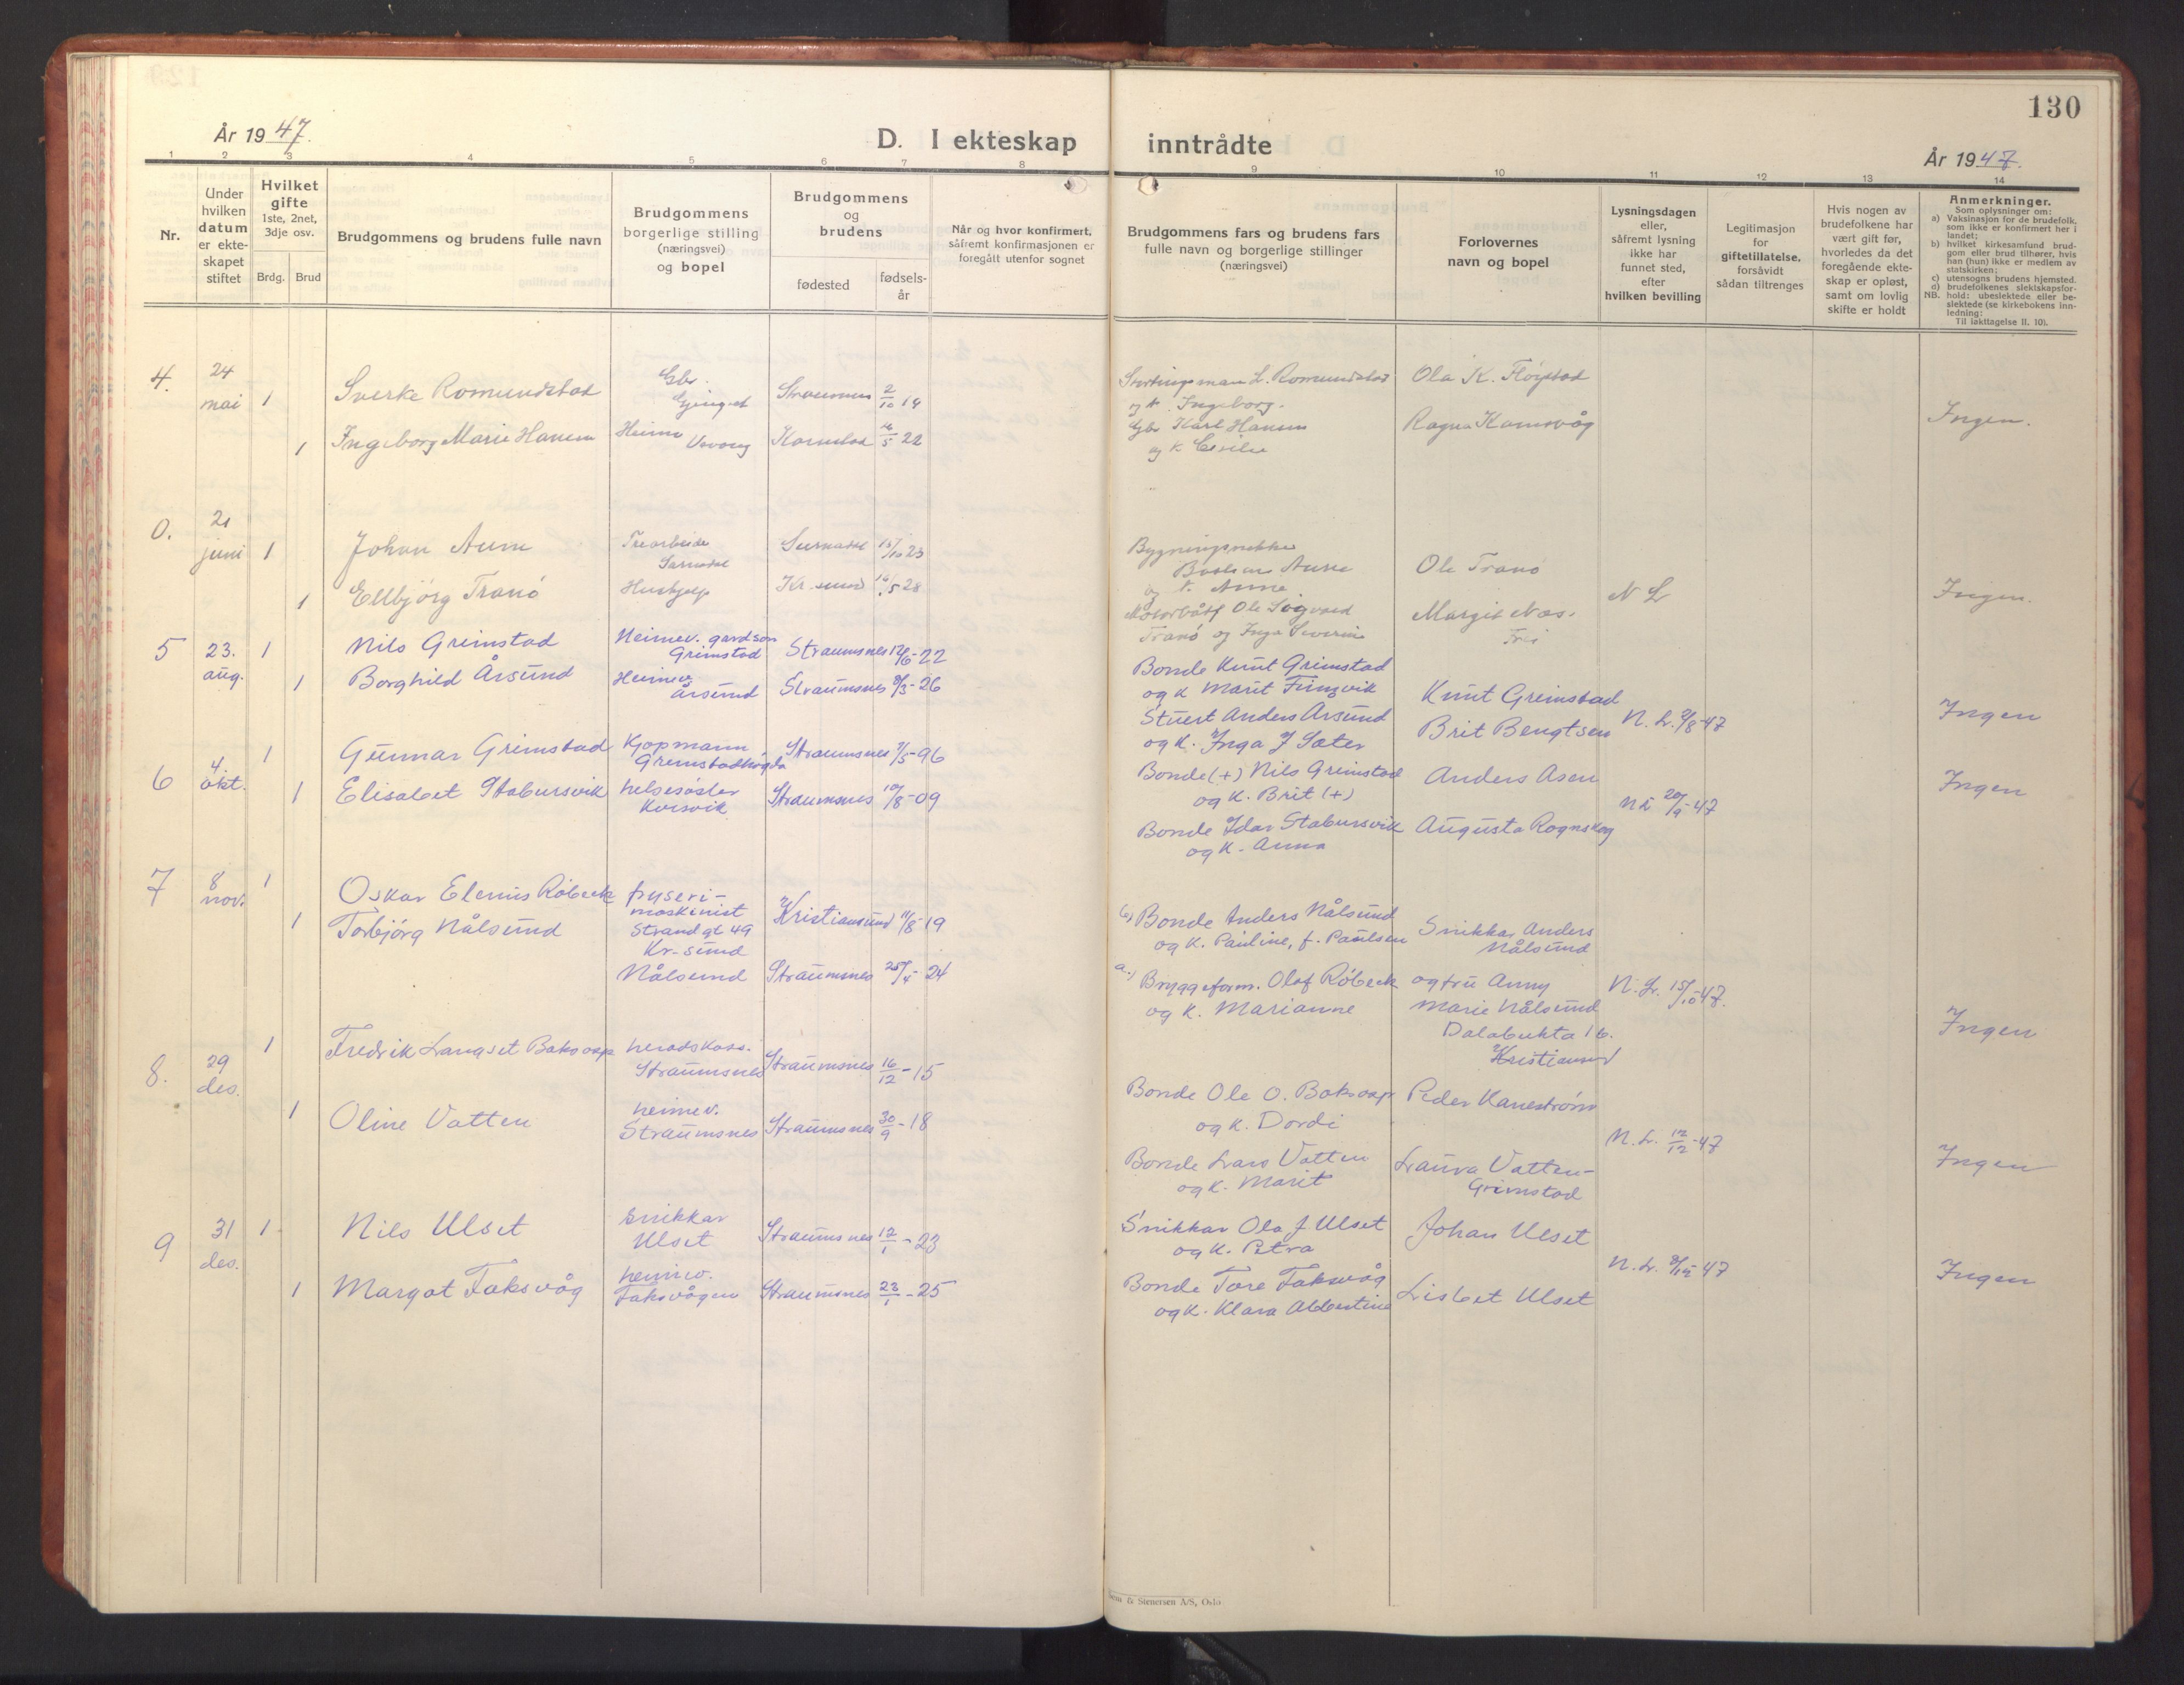 130
År 1947.
D. I ekteskap inntrådte
År 1947.
1 2 3 4 5 6 7 8 9 10 11 12 13 14
Nr.
Under hvilken datum er ekte-skapet stiftet
Hvilket gifte
1ste, 2net, 3dje osv.
Brdg. Brud
Brudgommens og brudens fulle navn
Brudgommens borgerlige stilling (næringsvei) og bopel
Brudgommens og brudens
fødested
fødsels-år
Når og hvor konfirmert, såfremt konfirmasjonen er foregått utenfor sognet
Brudgommens fars og brudens fars fulle navn og borgerlige stillinger (næringsvei)
Forlovernes navn og bopel
Lysningsdagen eller, såfremt lysning ikke har funnet sted, efter hvilken bevilling
Legitimasjon for giftetillatelse, forsåvidt sådan tiltrenges
Hvis nogen av brudefolkene har vært gift før, hvorledes da det foregående ekte-skap er opløst, samt om lovlig skifte er holdt
Anmerkninger.
Som oplysninger om:
a) Vaksinasjon for de brudefolk, som ikke er konfirmert her i landet;
b) hvilket kirkesamfund brud-gom eller brud tilhører, hvis han (hun) ikke er medlem av statskirken;
c) utensogns brudens hjemsted.
d) brudefolkenes slektskapsfor-hold: ubeslektede eller be-slektede (se kirkebokens inn-ledning:
NB.
Til iakttagelse II. 10).
4. 24 mai 1
Sverke Romundstad
Gbr.
Straumsnes 2/10 14
Stortingsmann L. Romundstad
og k. Ingeborg.
Ola K. Fløystad
1 Ingeborg Marie Hansen
Heime
Kornstad 4/5 22
Gbr Karl Hansen
og k
Ragna
Ingen.
0. 21 juni 1
Johan Aune
Trearbeide
Surnadal
Surnadal 15/10 23
Aune
og k. Anne
Ole Tranø
1 Ellbjørg Tranø
Hushjelp
Kr.sund 16/5 28
Ole Sigvard
Tranø og Inga Severine
Margit Næs.
Frei
N L
Ingen.
5 23. aug. 1
Nils Grimstad
Heimev. gardsøn
Grimstad
Straumsnes 12/6-22
Bonde Knut Grimstad
og k Marit
Knut Grimstad
1 Borghild Årsund
Heimev.
Årsund
Straumsnes 9/3-26
Anders Årsund
og k. Inga J Sæter
Brit Bengtsen
N. L. 9/8-47
Ingen
6 4. okt. 1
Gunnar Grimstad
Kjøpmann
Straumsnes 7/5-96
Bonde (+) Nils Grimstad
og k. Brit (+)
Anders Åsen
1 Elisabet Stabursvik
helsesøster
Korsvik
Straumsnes 10/8-09
Bonde Idar Stabursvik
og k. Anna
Augusta Rognskog
N L 20/9-47
Ingen
7 8 nov. 1
Oskar Elenus Røbeck
fryseri-
maskinist
Strandgt 49
Kr-sund
Kristiansund 11/8-19
b) Bonde Anders Nålsund
og k. Pauline, f. Paulsen
Snikkar Anders
Nålsund
1 Torbjørg Nålsund
Nålsund
Straumsnes 25/4-24
a.) Bryggeform. Olaf Røbeck
og k. Marianne
og fru Anny
Marie Nålsund
Dalabukta 16.
Kristiansund
N. L. 15/10-47.
Ingen
8. 29 des. 1
Fredrik Langset Boksasp
heradskass.
Straumsnes
Straumsnes 16/12-15
Bonde Ole O. Boksasp
og k. Dordi
Peder Kanestrøm
1 Oline Vatten
heimev.
Straumsnes
Straumsnes 30/9-18
Bonde Lars Vatten
og k. Marit
Laura Vatten-
Grimstad
N. L. 12/12-47
Ingen
9 31 des. 1
Nils Ulset
Snikkar
Ulset
Straumsnes 12/1-23
Snikkar Ola J Ulset
og k. Petra
Johan Ulset
1 Margot Taksvåg
heimev.
Taksvågen
Straumsnes 23/1-25
Bonde Tore Taksvåg
og k. Klara Albertine
Lisbet Ulset
N. L. 9/12-47
Ingen
& Stenersen A/S, Oslo